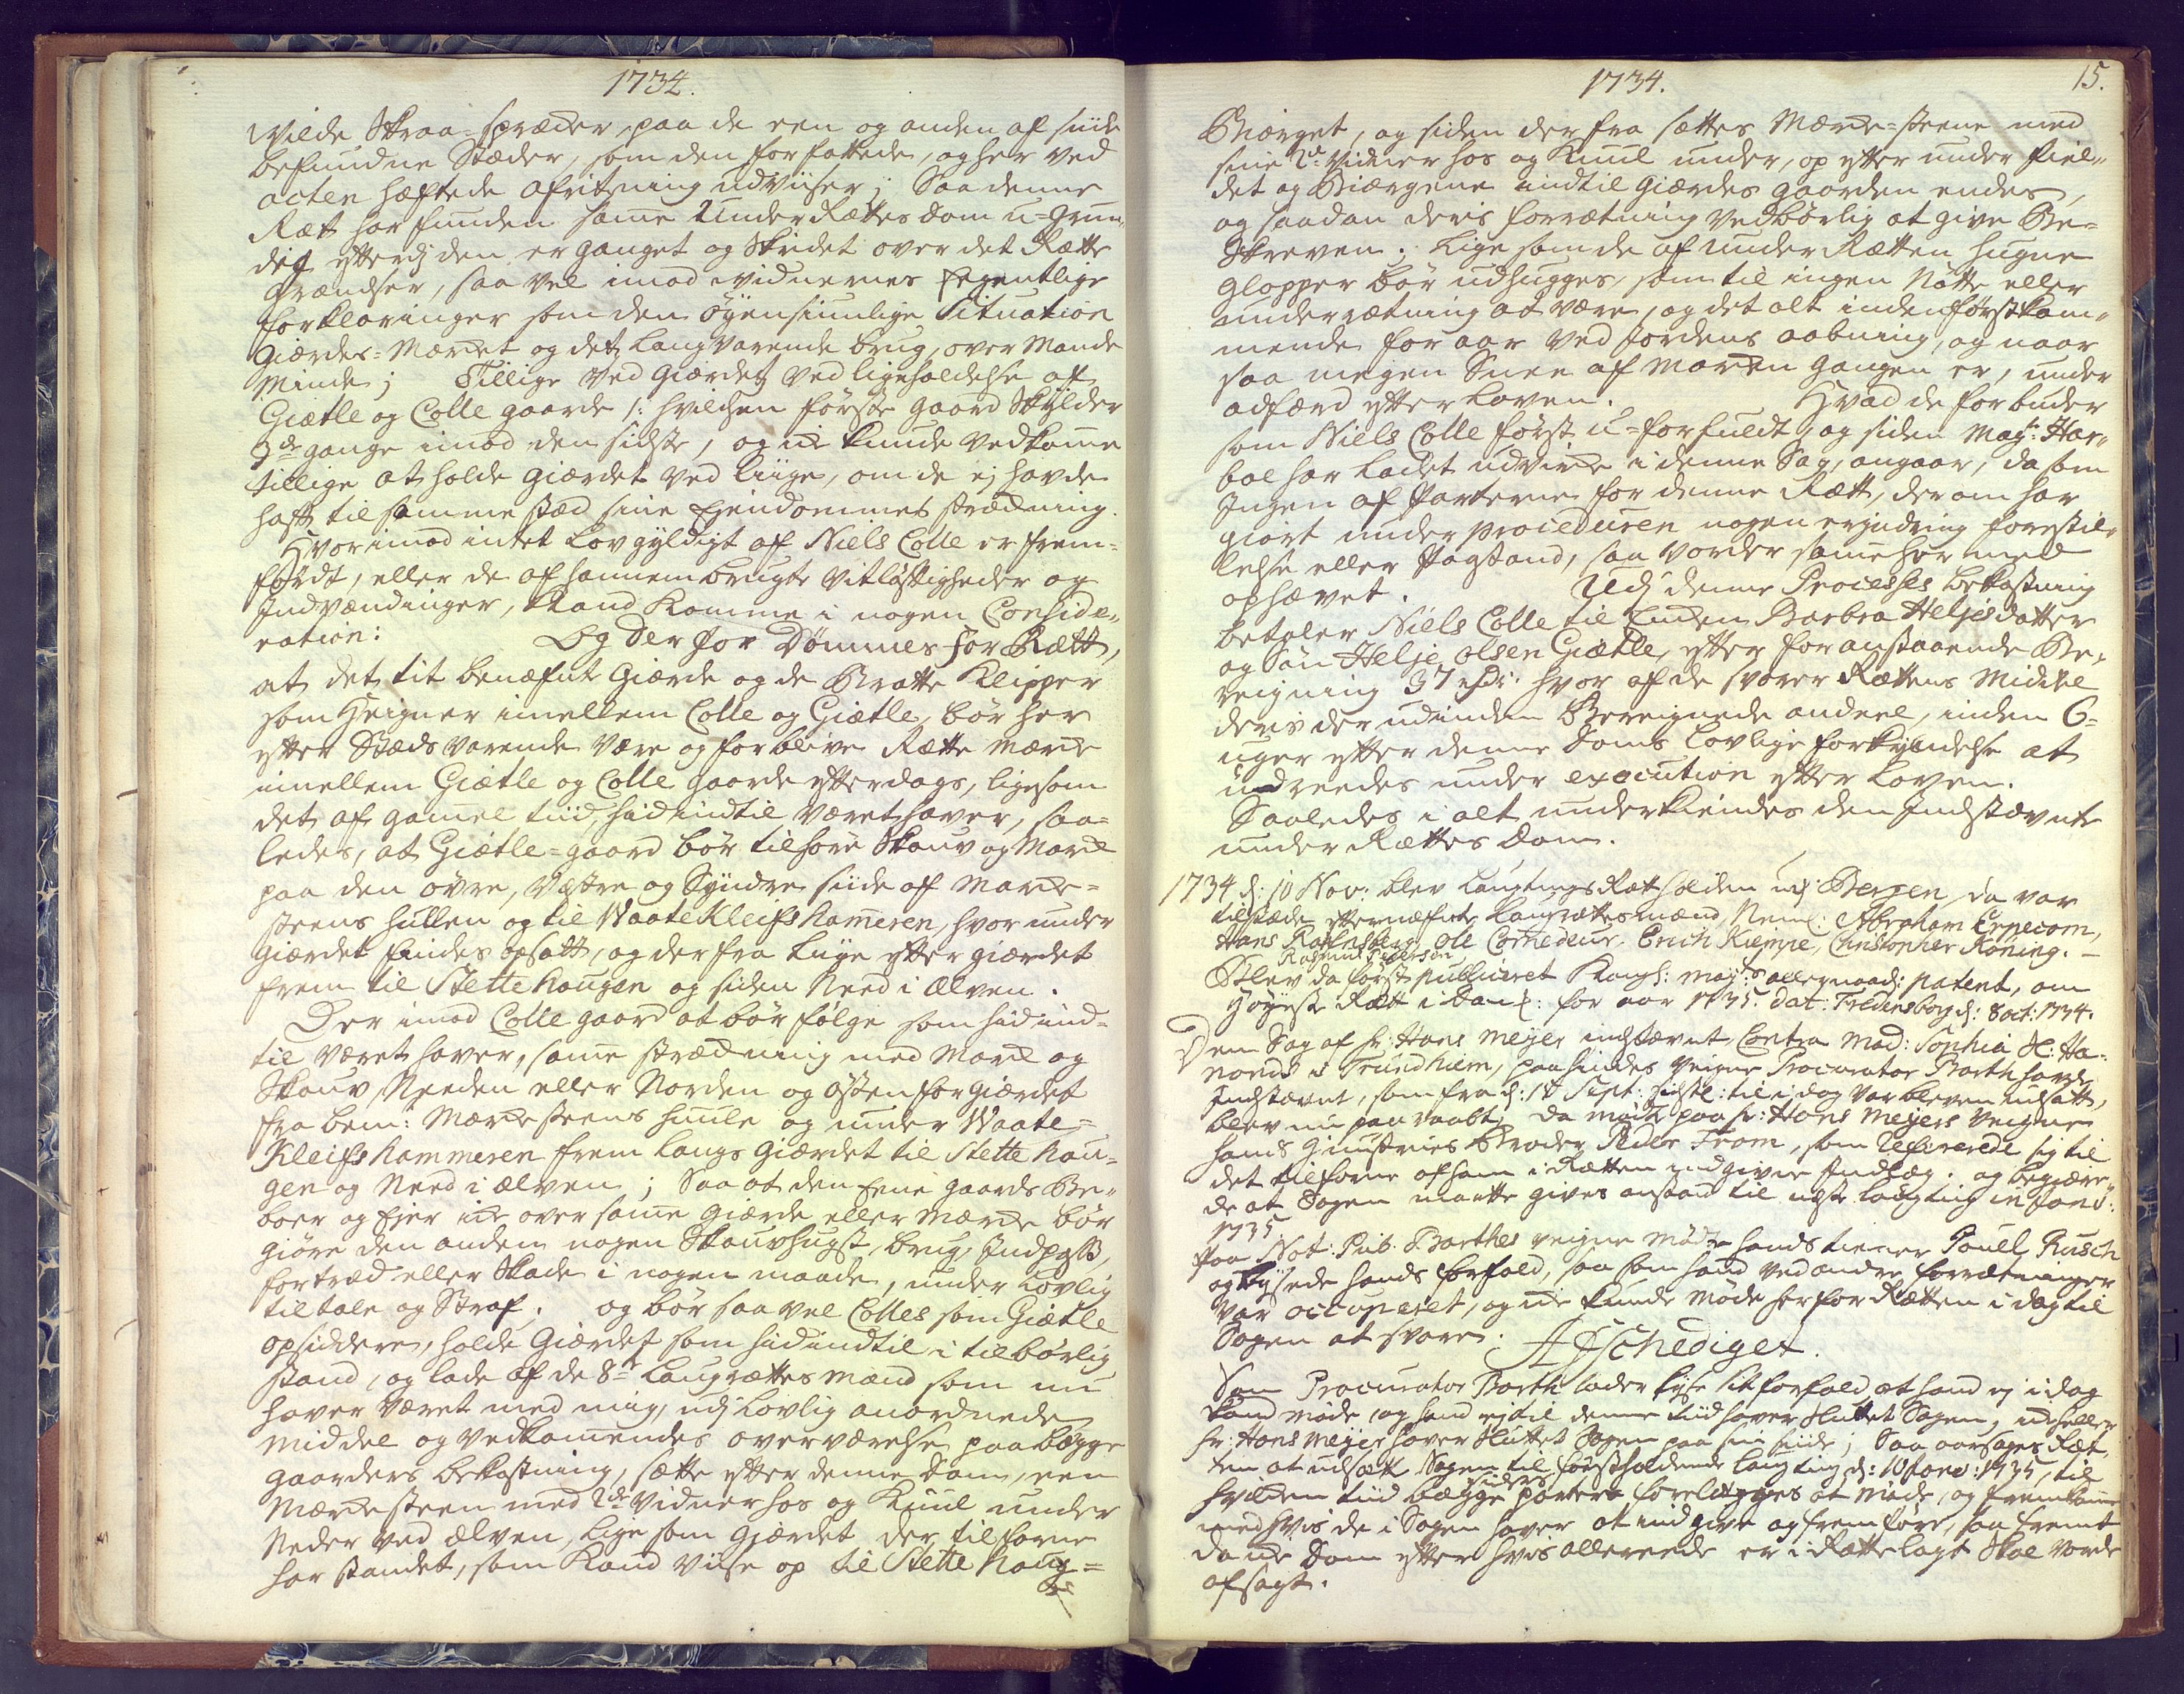 1734.
Vilde Skraa-spræder, paa de een og anden af siide
befundne Stæder, som den forfattede, og her ved
acten hæftede afritzning udviiser; Saa denne
Ræt har funden samme Under Rættes Dom u-grun-
dig efterdj den er ganget og Skridet over det Rette
Grændser, saa vel imod vidnernes Egentlige
forklaringer som den øyensiunlige Situation
Giærdes-Mærket og det langvarende brug, over Mands
Minde; Tillige ved Giærdets ved ligeholdelse af
Giætle og Colle gaarde /: hvilchen første gaard Skylder
3de gange imod den sidste, og icke kunde vedkomme
tillige at holde giærdet ved liige, om de ej havde
haft til samme stæd sine Ejendommes strædning.
Hvorimod intet Lovgyldigt af Niels Colle er frem-
ført, eller de af hannem brugte vitløftigheder og
Indvendinger, kand komme i nogen Conside-
ration: Og Derfor Dømmes for Rætt,
at det tit benæfnte Giærde og de Bratte Klipper
som Heigner imellem Colle og Giætle, bør her
efter Stædsvarende være og forblive Rette mærke
imellem Giætle og Colle gaarde efterdags, ligesom
det af gamel tiid, hid indtil været haver, saa-
ledes, at Giætle-gaard bør tilhøre Skouv og Mark
paa den øvre, Væstre og Syndre siide af Mærke-
steens hullen og til Vaatekleifshameren, hvor under
Giærdet findes opsatt, og der fra liige efter giærdet
frem til Stettehougen og siden Need i Elven.
Der imod Colle gaard at bør følge som hid ind-
til været haver, samme strædning med Mark og
Skouv Needen eller Norden og østen for giærdet
fra bem: Mærkesteens huule og under Vaate-
Kleifs hammeren frem langs Giærdet til Stette hou-
gen og Need i Elven; Saa at den Eene gaards Be-
boer og Ejer icke over samme Giærde eller Mærke bør
giøre den anden nogen Skouvhugst, brug, Indpas,
fortræd eller Skade i nogen maade, under Lovlig
tiltale og Straf. og bør saa vel Colles som Giætle
opsiddere, holde Giærdet som hid indtil i tilbørlig
stand, og lade af de 8te Laugrettes Mænd som nu
haver været med mig, udj Lovlig anordnede
middel og vedkommendes overværelse paa begge
Gaarders bekostning, sætte efter denne Dom, een
Mærkesteen med 2de vidner hos og Kuul under
Neder ved Elven, lige som Gjærdet der tilforne
har standet, som kand viise op til Stette Houg-
1734. 15.
Biærget, og siden der fra sættes Mærke-steene med
sine 2de vidner hos og Kuul under, op efter under fiel-
det og Biærgene indtil Giærdes gaarden endes,
og saadan deris forrætning vedbørlig at give Be-
skreven; lige som de af under Rætten hugne
Glopper bør udhugges, som til ingen Nøtte eller
underrætning at være, og det alt inden førstkom-
mende for aar ved Jordens aabning, og naar
saa megen Snee af Marken gangen er, under
adfærd efter Loven. Hvad de forbuder
som Niels Colle først u-forfuldt, og siden Magr: Har-
boe har ladet udvirke i denne Sag, angaar, da som
Ingen af Parterne for denne Rætt, derom har
giort under proceduren nogen erindring forestil-
lelse eller Paastand, saa vorder samme her med
ophævet. Udj denne Processes bekostning
betaler Niels Colle til Enken Barbra Heljesdatter
og Søn Helje Olsen Giætle, efter foranstaaende Be-
reigning 37 rdr: hvor af de svarer Rettens Middel
deris der udinden Bereignede andeel, inden 6-
uger efter denne Doms lovlige forkyndelse at
udreedes under execution efter Loven.
Saaledes i alt underkiendes den Indstævnte
under Rættes Dom.
1734 d: 10 Nov: blev Laugtings Ræt holden udj Bergen, da var
tilstæde efternæfnte Laugrættesmænd, Neml: Abraham Erpecom,
Hans Ravensberg, Ole Cornedeur, Erich Kiempe, Christopher Kóning.
Rasmus Pedersen
Blev da først publiceret Kongl: May:s allernaad: patent, om
Høyeste Rætt i Danm: for aar 1735. dat: Fredensborg d: 8 oct: 1734.
Dem Sag af Hr: Hans Meyer indstævnt Contra Mad: Sophia Sl: Ha-
nonds i Trundhiem, paa hvilkes veigne Procurator Barth havde
Indstævnt, som fra d: 14 Sept: sidstl: til i dag var bleven udsatt,
blev nu paaraabt, da mødte paa Hr: Hans Meyers Veigne
hans Hustrues broder Peder From, som refererede sig til
det tilforne af ham i Rætten indgivne Indlæg. og begiære-
de at Sagen maatte gives anstand til næste laugting in Janv:
1735
Paa Not: Pub. Barthes veigne mødte hands tiener Povell Rusch
og lysede hands forfald, saa som hand ved andre forrætninger
var occuperet, og icke kunde møde her for Rætten i dag til
Sagen at svare. Afschediget.
Som Procurator Barth lader lyse sit forfald at hand ej i dag
kand møde, og hand ej til denne tiid haver Sluttet Sagen, icke heller
Hr: Hans Meyer haver Sluttet Sagen paa sin siide; Saa aarsages Ræt-
ten at udsætte Sagen til førstholdende laugting d: 10 Janv: 1735, til
hvilken tiid begge siders parter forelegges at møde, og fremkomme
med hvis de i Sagen haver at indgive og fremføre, saa fremt
da icke Dom efter hvis allereede er i Rette lagt skal vorde
afsagt.